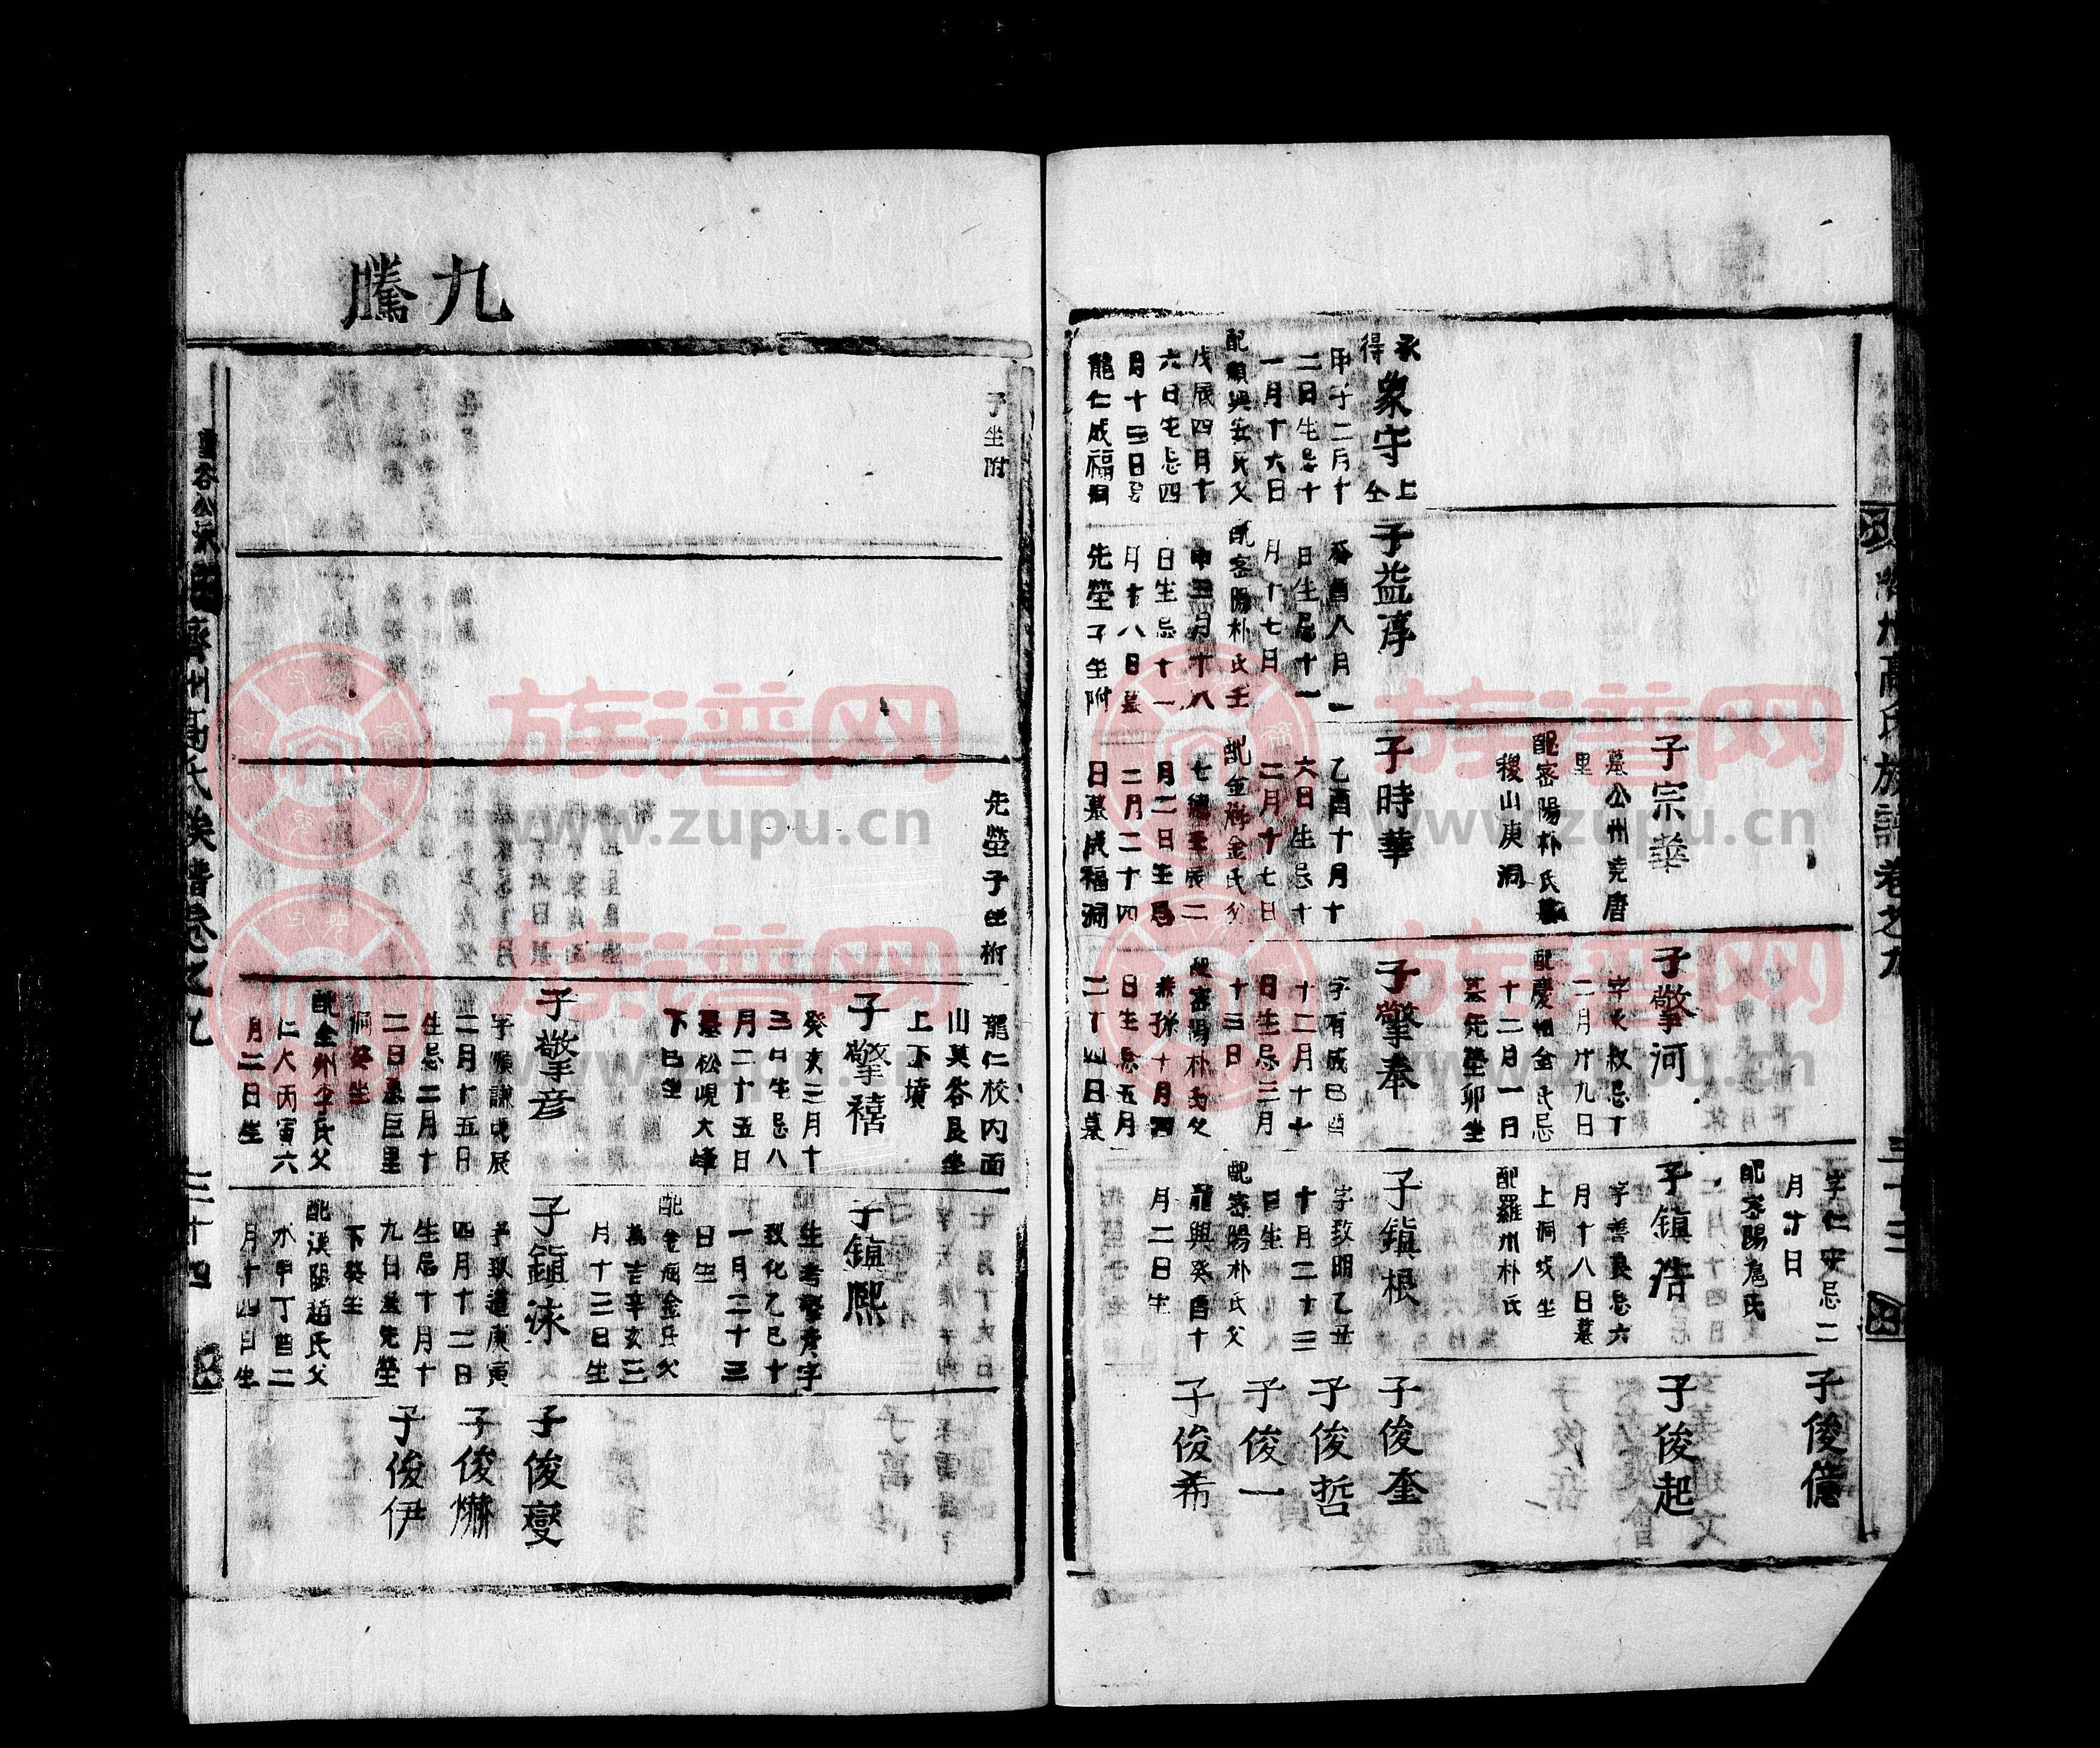 濟州高氏族譜卷之九
三十三
承
得
象守
上
仝
甲子二月十
二日生忌十
一月十六日
配順興安氏父
戊辰四月十
六日生忌四
月十三日墓
龍仁成福洞
子益淳
癸酉八月一
日生忌十一
月十七日
配密陽朴氏壬
申三月十八
日生忌十一
月十八日墓
先塋子坐附
子宗華
墓公州
里
配密陽朴氏墓
稷山庚洞
子時華
乙酉十月十
六日生忌十
二月十七日
配金海金氏父
七德壬辰二
月二日生忌
二月二十四
日墓成福洞
子擎河
字永叔忌丁
二月十九日
配慶州金氏忌
十二月一日
墓先塋卯坐
子擎奉
字有成己酉
十二月十七
日生忌三月
十三日
配密陽朴氏父
日生忌五月
二十四日墓
字仁安忌二
月廿日
配密陽扈氏
子鎭浩
字善良忌六
月十八日墓
上洞戌坐
配羅州朴氏
子鎭根
字致明乙丑
十月二十三
日生
配密陽朴氏父
龍興癸酉十
月二日生
子俊億
子俊起
子俊奎
子俊哲
子俊一
子俊希
九
騰
子坐附
先塋子坐祔
龍仁校內面
山莫谷艮坐
上下墳
子擎禧
癸亥三月十
三日生忌八
月二十五日
墓松峴大峰
下巳坐
子擎彦
字順謙戊辰
二月十五日
生忌二月十
二日墓巨里
洞癸坐
配全州李氏父
仁大丙寅六
月二日生
子鎭熙
生考擎彦字
致化乙巳十
一月二十三
日生
配金海金氏父
萬吉辛亥三
月十三日生
子鎭洙
字致道庚寅
四月十二日
生忌十月十
九日墓先塋
下癸坐
配漢陽趙氏父
永甲丁酉二
月十四日生
子俊燮
子俊爀
子俊伊
谷公派
濟州高氏族譜卷之九
三十四
族谱网
www.zupu.cn
族谱网
www.zupu.cn
族谱网
www.zupu.cn
族谱网
www.zupu.cn